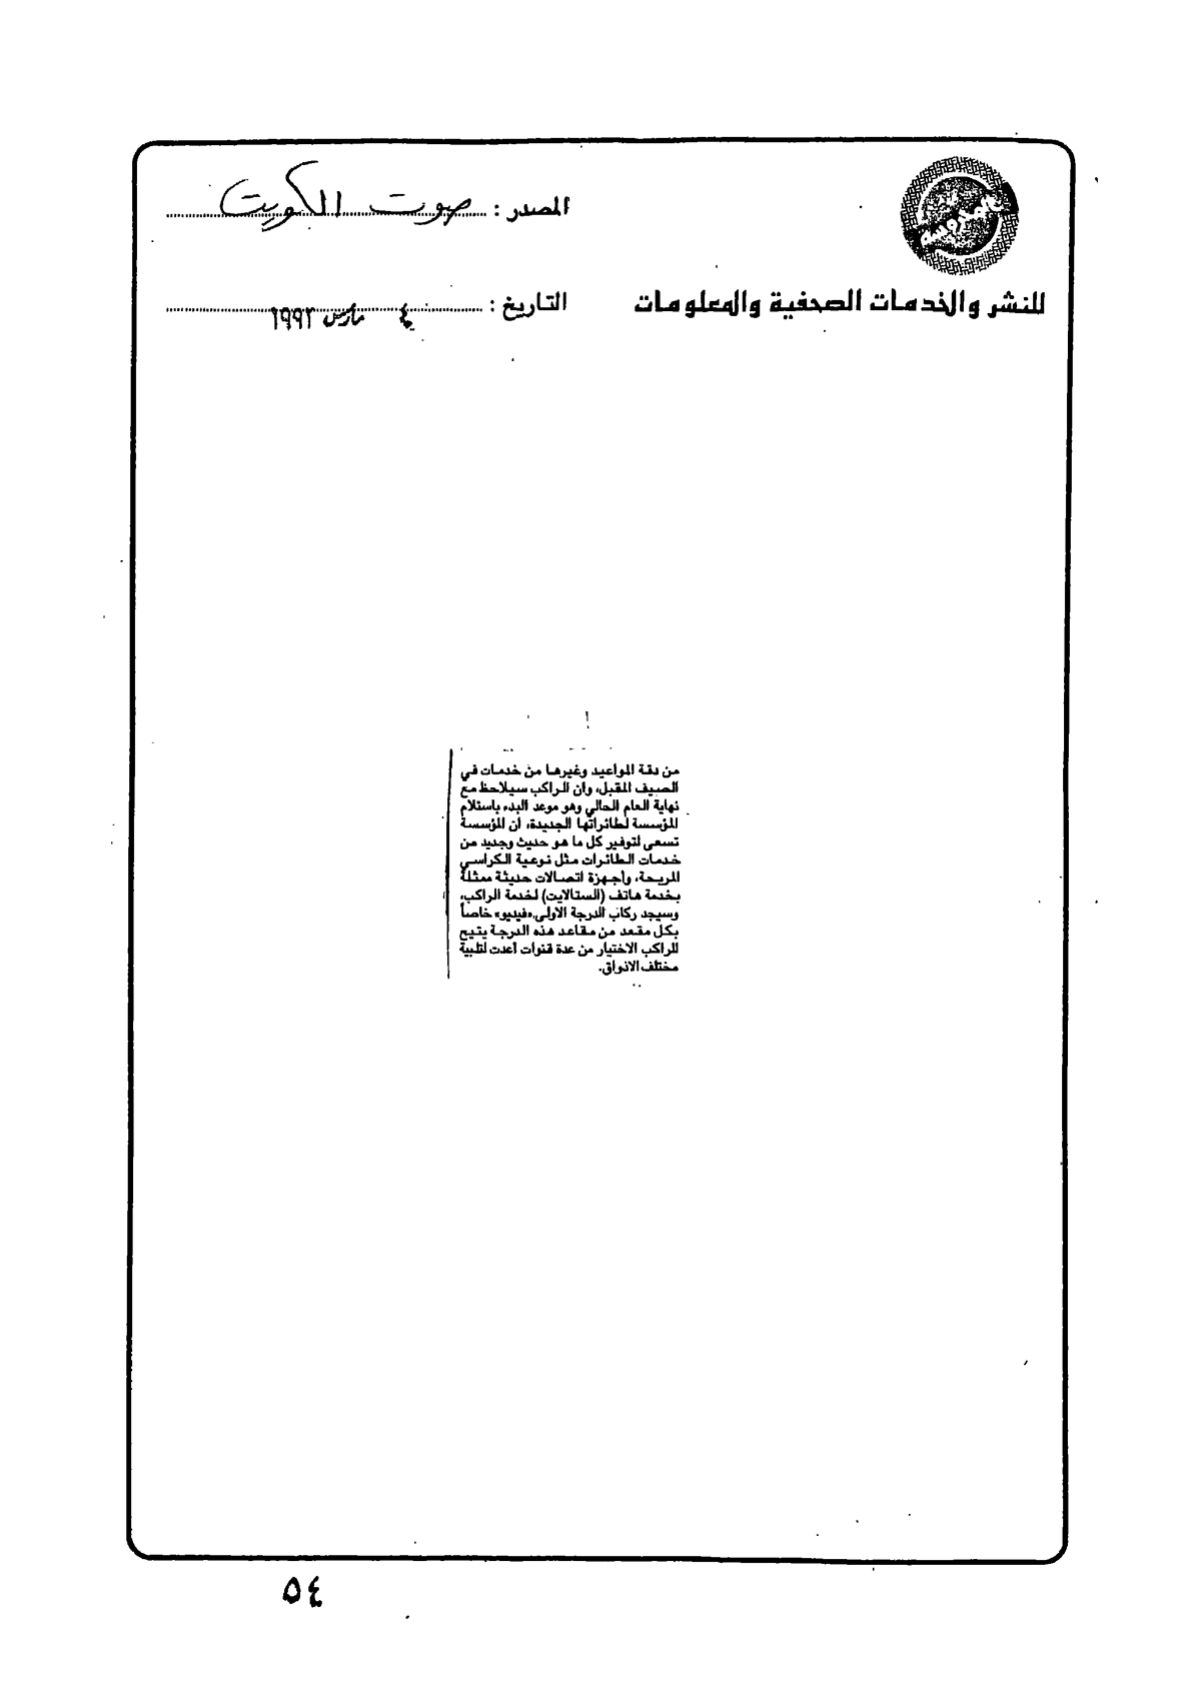 المصدر : صوت الكويت
للنشر والخدمات الصحفية والمعلومات
التاريخ : ٤ مارس ١٩٩٢
من دقة المواعيد وغيرها من خدمات في
الصيف المقبل، وأن الراكب سيلاحظ مع
نهاية العام الحالي وهو موعد البدء باستلام
المؤسسة لطائراتها الجديدة، ان المؤسسة
تسعى لتوفير كل ما هو حديث وجديد من
خدمات الطائرات مثل نوعية الكراسي
المريحة، وأجهزة اتصالات حديثة ممثلة
بخدمة هاتف (الستالايت) لخدمة الراكب،
وسيجد ركاب الدرجة الاولى «فيديو» خاصاً
بكل مقعد من مقاعد هذه الدرجة يتيح
للراكب الاختيار من عدة قنوات أعدت لتلبية
مختلف الاذواق.
٥٤